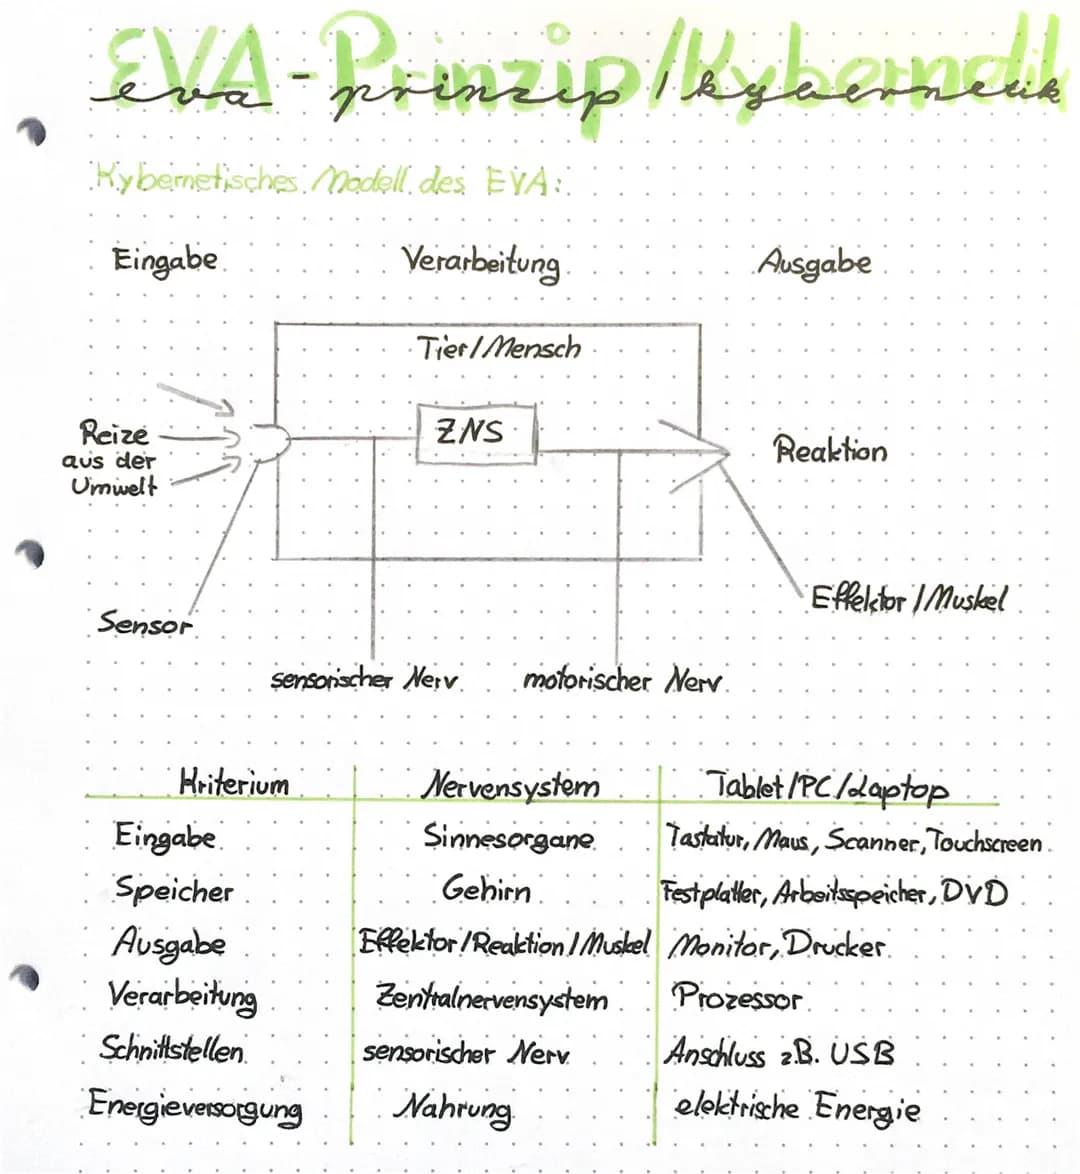 EVA-Prinzip/Kybernetik
eva-prinzip/kybernetik
Kybernetisches Modell des EVA:
Eingabe Verarbeitung Ausgabe
Tier/Mensch
ZNS
Reize
aus der
Umwelt
Reaktion
Effektor/Muskel
Sensor
sensorischer Nerv motorischer Nerv
Kriterium Nervensystem Tablet/PC/Laptop
Eingabe Sinnesorgane Tastatur, Maus, Scanner, Touchscreen
Speicher Gehirn Festplatter, Arbeitsspeicher, DVD
Ausgabe Effektor/Reaktion/Muskel Monitor, Drucker
Verarbeitung Zentralnervensystem Prozessor
Schnittstellen sensorischer Nerv Anschluss zB. USB
Energieversorgung Nahrung elektrische Energie